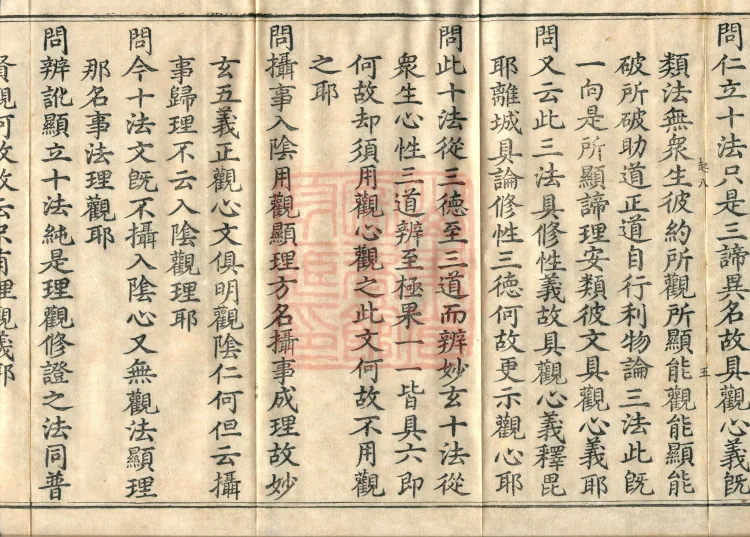 問仁立十法只是三諦異名故具觀心義旣
類法無衆生彼約所觀所顯能觀能顯能
破所破助道正道自行利物論三法此旣
一向是所顯諦理安類彼文具觀心義耶
問又云此三法具修性義故具觀心義釋毘
耶離城具論修性三德何故更示觀心耶
問此十法從三德至三道而辨妙玄十法從
衆生心性三道辨至極果一一皆具六即
何故却須用觀心觀之此文何故不用觀
之耶
問攝事入陰用觀顯理方名攝事成理故妙
玄五義正觀心文俱明觀陰仁何但云攝
事歸理不云入陰觀理耶
問今十法文旣不攝入陰心又無觀法顯理
那名事法理觀耶
問辨訛顯立十法純是理觀修證之法同普
賢觀何故故云只有理觀義耶
五